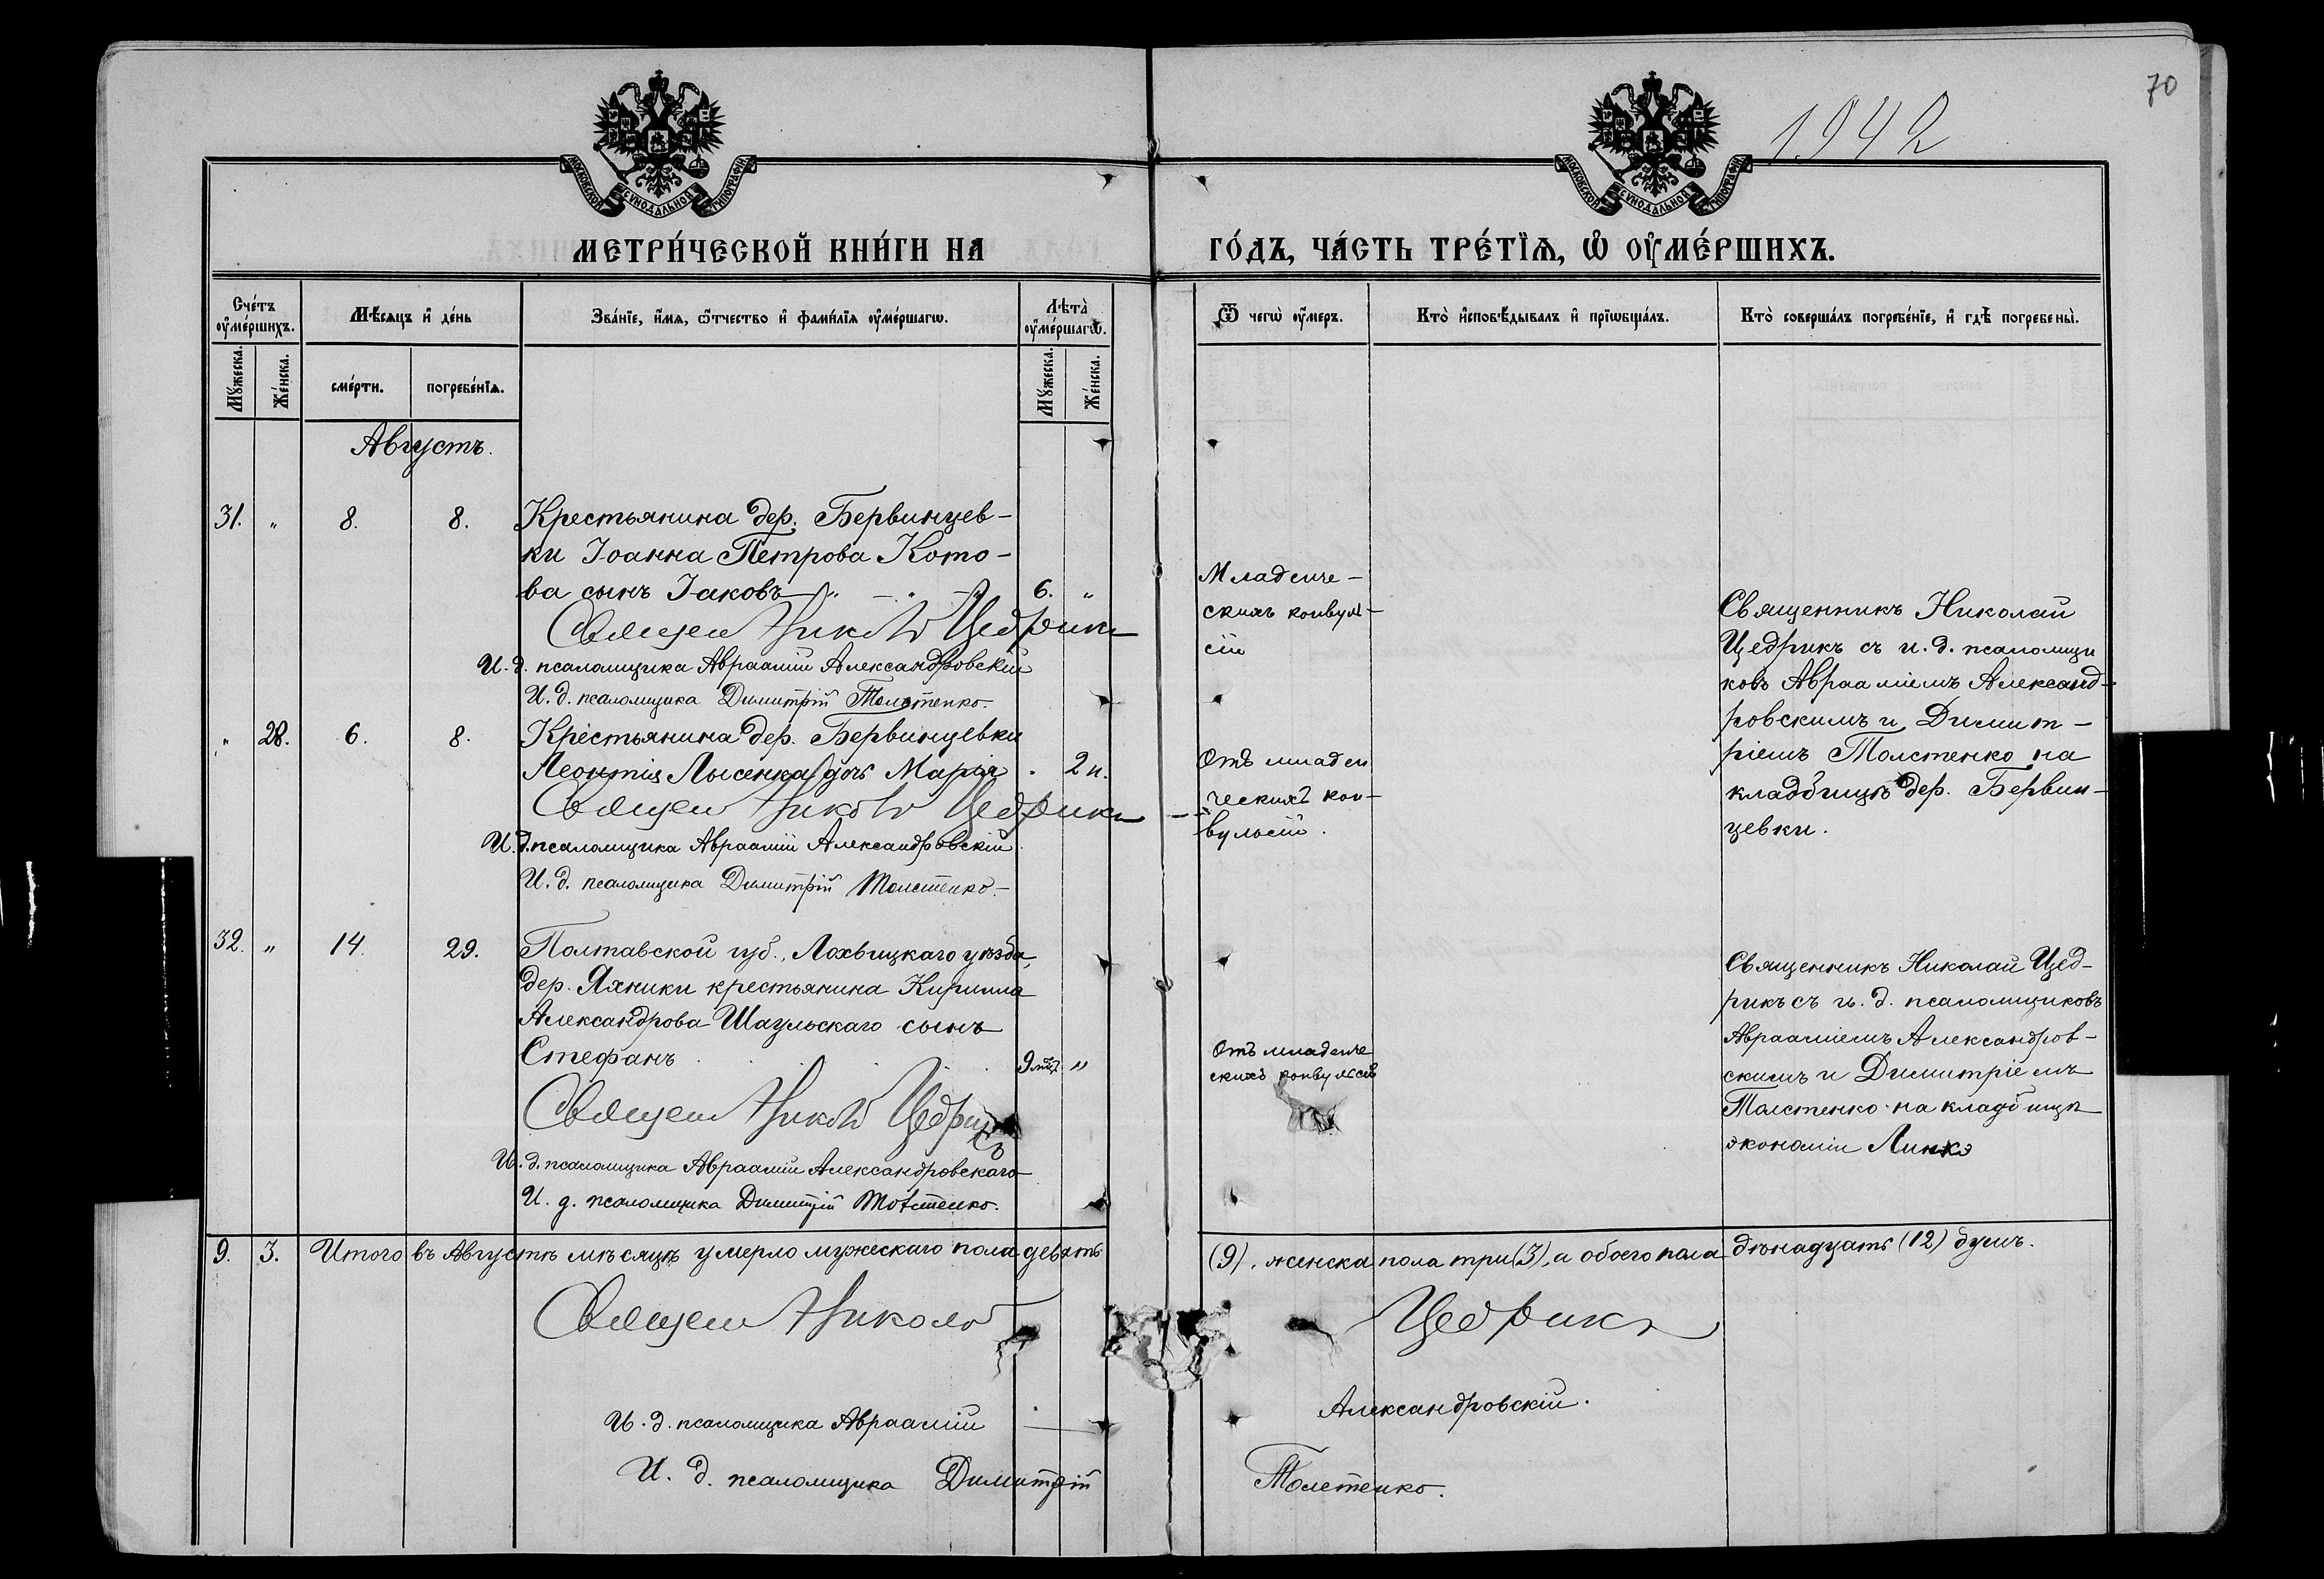 70
1942
МОСКОВСКОЙ СѴНОДАЛЬНОЙ ТИПОГРАФІИ
МОСКОВСКОЙ СѴНОДАЛЬНОЙ ТИПОГРАФІИ
МЕТРИ́ЧЕСКОЙ КНИ́ГИ НА
ГО́ДЪ, ЧА́СТЬ ТРЕ́ТЇѦ, Ѡ҆ ОУ҆МЕ́РШИХЪ.
Сче́тъ оу҆ме́ршихъ.
Мѣ́сяцъ и҆ де́нь
Зва́нїе, и҆́мѧ, ѻ҆́тчество и҆ фами́лїѧ оу҆ме́ршагѡ.
Лѣ́та̀ оу҆ме́ршагѡ.
Ѿ чегѡ̀ оу҆́меръ.
Кто̀ и҆сповѣ́дывалъ и҆ прїѡбща́лъ.
Кто̀ соверша́лъ погребе́нїе, и҆ гдѣ̀ погребены̀.
Мꙋ́жеска.
Же́нска.
сме́рти.
погребе́нїѧ.
Мꙋ́жеска.
Же́нска.
Августъ.
31. " 8. 8. Крестьянина дер. Бервинцев-
ки Іоанна Петрова Кото-
ва сынъ Іаковъ - " - " - 6. "
Священ Николай Цедрикъ
И. д. псаломщика Авраамій Александровскій
И. д. псаломщика Димитрій Толстенко.
Младенче-
скихъ конвуль-
сій
Священникъ Николай
Цедрикъ съ и. д. псаломщи
ковъ Авраамiемъ Александ-
ровскимъ и Димит-
ріемъ Толстенко на
кладбищѣ дер. Бервин-
цевки.
" 28. 6. 8. Крестьянина дер. Бервинцевки
Леонтія Лысенка дочь Марія . 2 н.
Священ Николай Цедрикъ
И. д. псаломщика Авраамій Александровскій
И. д. псаломщика Димитрій Толстенко.-
Отъ младен
ческихъ кон-
вульсій.
32. " 14. 29. Полтавской губ., Лохвицкаго уѣзда,
дер. Яхники крестьянина Кирилла
Александрова Шаульскаго сынъ
Стефанъ . . . . 9 мѣс. "
Священ Николай Цедрикъ
И. д. псаломщика Авраамій Александровскаго
И. д. псаломщика Димитрій Толстенко.
Отъ младенче
скихъ конвульсій
Священникъ Николай Цед-
рикъ съ и. д. псаломщиковъ
Авраамiемъ Александров-
скимъ и Димитріемъ
Толстенко на кладбищѣ
экономіи Линкэ
9. 3. Итого въ Августѣ мѣсяцѣ умерло мужескаго пола девять (9), женска пола три (3), а обоего пола двѣнадцать (12) душъ.
Священ Николай Цедрикъ
И. д. псаломщика Авраамій Александровскій.
И. д. псаломщика Димитрій Толстенко.